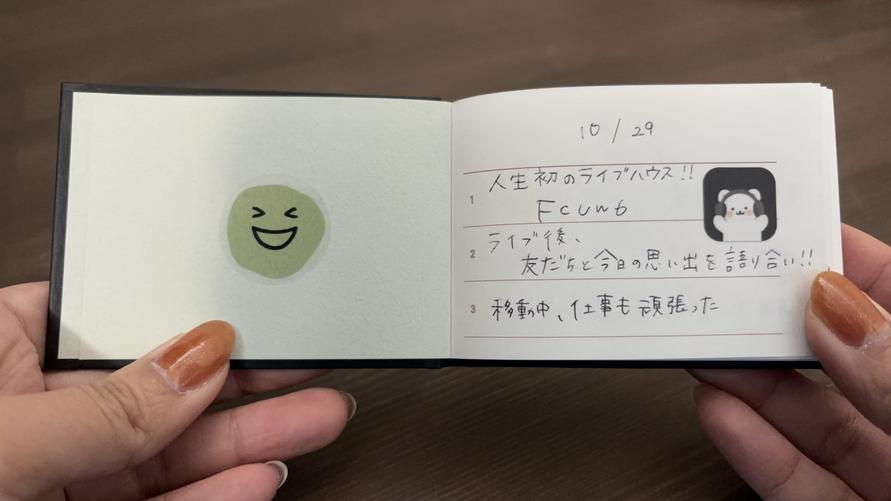 10/29
1 人生初のライブハウス!!
Fcuwb
2 ライブ後、
友だちと今日の思い出を語り合い!!
3 移動中、仕事も頑張った